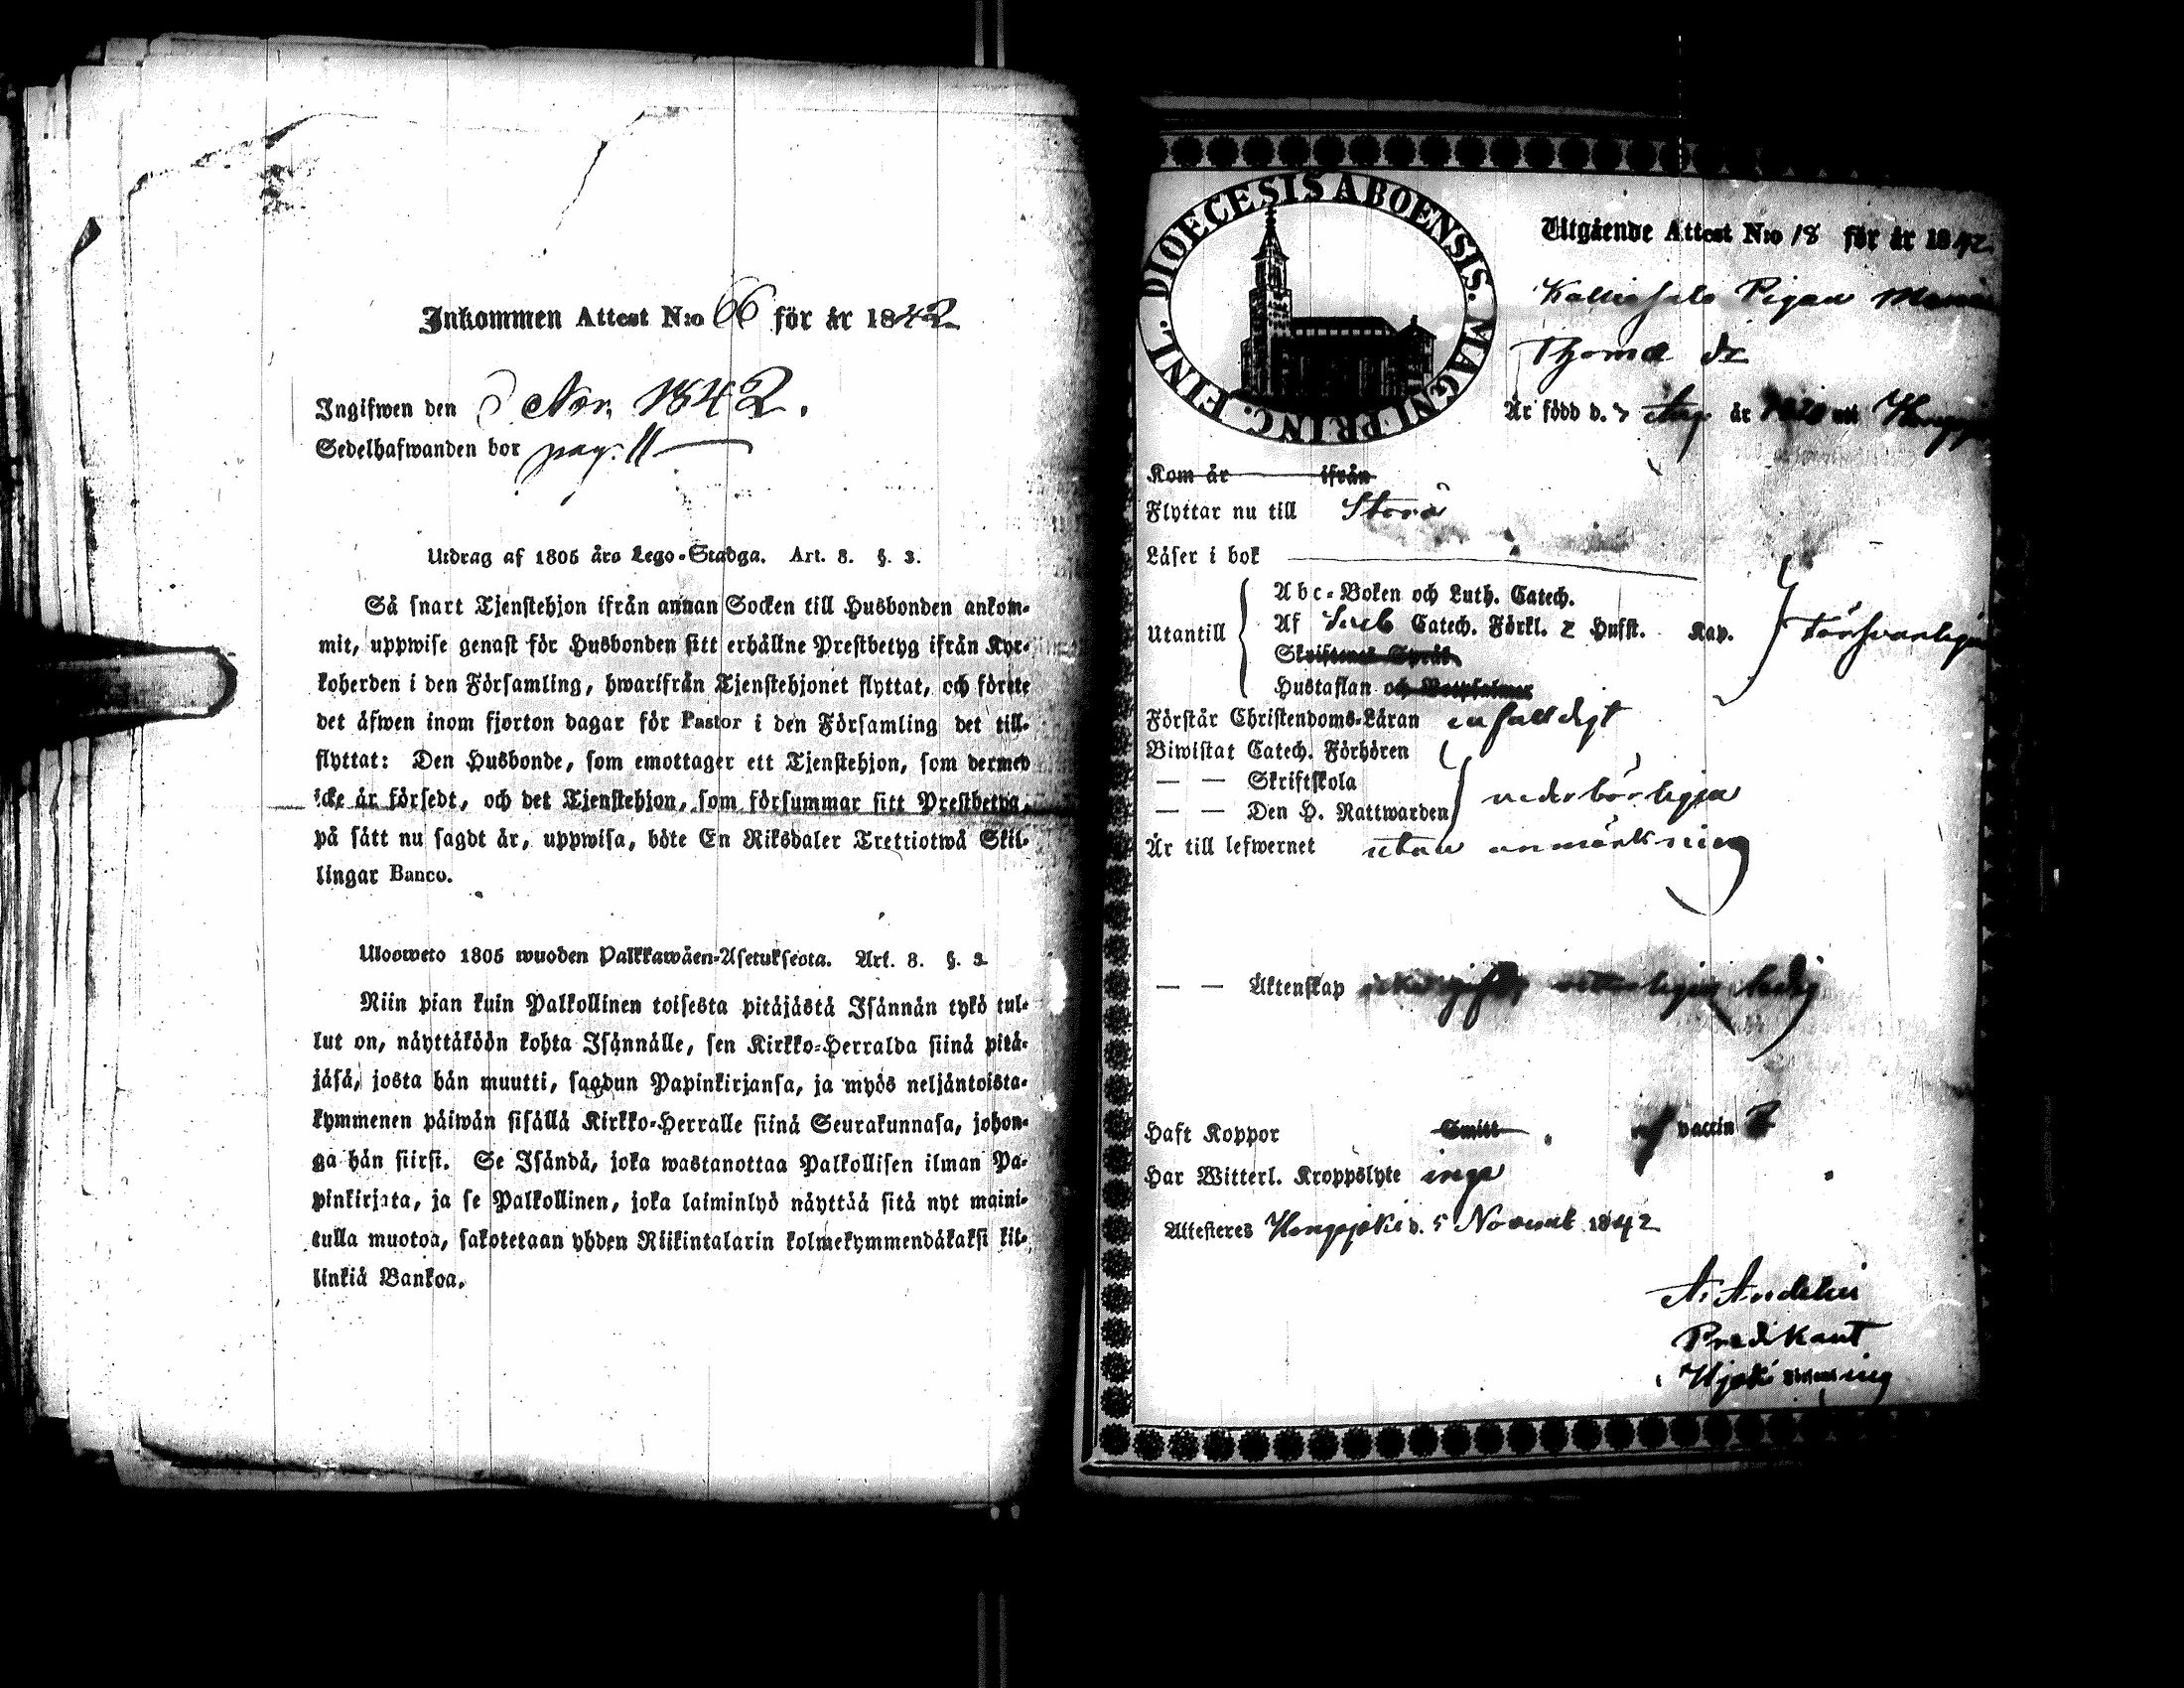 Inkommen Attest N:o 66 för år 1842
Ingifwen den Nov. 1842.
Sedelhafwanden bor pag. 11
Utdrag af 1805 års Lego-Stadga. Art. 8. §. 3.
Så snart Tjenstehjon ifrån annan Socken till Husbonden ankom-
mit, uppwise genast för Husbonden sitt erhållne Prestbetyg ifrån Kyr-
koherden i den Församling, hwarifrån Tjenstehjonet flyttat, och förete
det äfwen inom fjorton dagar för Pastor i den Församling det till-
flyttat: Den Husbonde, som emottager ett Tjenstehjon, som dermed
icke är försedt, och det Tjenstehjon, som försummar sitt Prestbetyg,
på sätt nu sagdt är, uppwisa, böte En Riksdaler Trettiotwå Skil-
lingar Banco.
Ulosweto 1805 wuoden Palkkawäen-Asetuksesta. Art. 8. §. 3.
Niin pian kuin Palkollinen toisesta pitäjästä Isännän tykö tul-
lut on, näyttäköön kohta Isännälle, sen Kirkko-Herralda siinä pitä-
jäsä, josta hän muutti, saadun Papinkirjansa, ja myös neljäntoista-
kymmenen päiwän sisällä Kirkko-Herralle siinä Seurakunnasa, johon-
ga hän siirsi. Se Isändä, joka wastanottaa Palkollisen ilman Pa-
pinkirjata, ja se Palkollinen, joka laiminlyö näyttää sitä nyt maini-
tulla muotoa, sakotetaan yhden Riikintalarin kolmekymmendäkaksi kil-
linkiä Bankoa.
DIOECESIS ABOENSIS. MAGNI PRINC. FINL.
Utgående Attest N:o 18 för år 1842.
Pigan
Thomæ dr
Är född d. 7 Aug år 1820 uti
Kom år ifrån
Flyttar nu till Storå
Läser i bok
Abc-Boken och Luth. Catech.
Utantill Af Catech. Förkl. 2 Hufst. Kap. försvarligen
Skriftenes Språk
Hustaflan och Botpsalmer
Förstår Christendoms-Läran enfaldigt
Biwistat Catech. Förhören
— — Skriftskola
— — Den H. Nattwarden vederbörligen
Är till lefwernet utan anmärkning
— — Äktenskap ledig
Haft Koppor Smitt vaccin
Har Witterl. Kroppslyte inga
Attesteres d. 5 Novemb 1842
Predikant